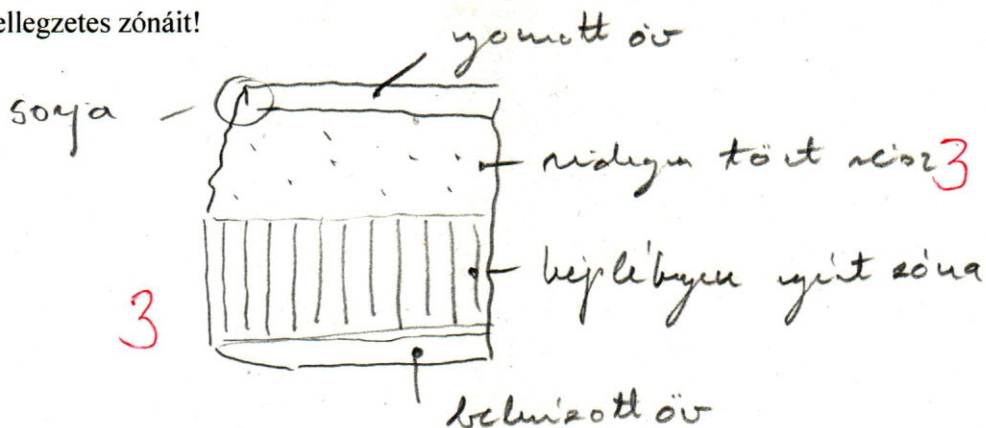 ellegzetes zónáit!
nyomott öv
sorja
ridegen tört rész 3
képlékenyen nyírt zóna
3
behúzott öv